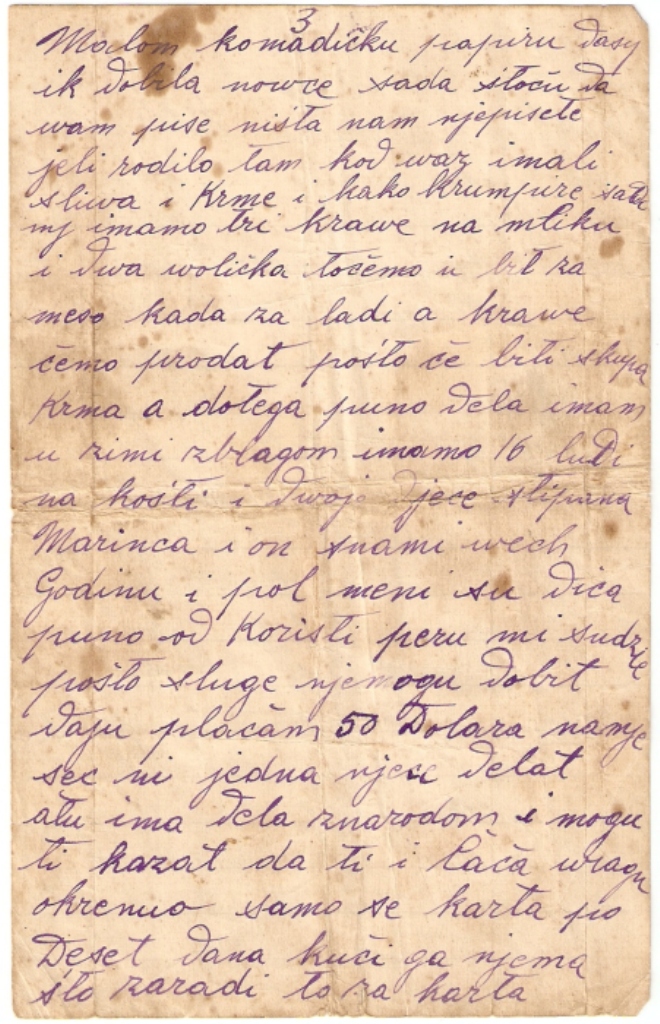 3
Malom komadičku papiru dasy
ik dobila nowce sada stoću da
wam pise ništa nam njepisete
jeli rodilo tam kod waz imali
sliwa i Krme i kako krumpire sada
my imamo tri krawe na mliku
i dwa wolička toćemo u bit za
meso kada za ladi a krawe
ćemo prodat pošto će biti skupa
Krma a dotega puno dela imam
u zimi zblagom imamo 16 ludi
na košti i dwoje djece stipana
Marinca i on snami wech
Godinu i pol meni su dica
puno od Koristi peru mi sudže
pošto sluge njemogu dobit
daju plaćam 50 Dolara namje
sec ni jedna njece delat
atu ima dela znarodom i mogu
ti kazat da ti i ćaća wragu
okrenuo samo se karta po
Deset dana kući ga njema
što zaradi to za karta